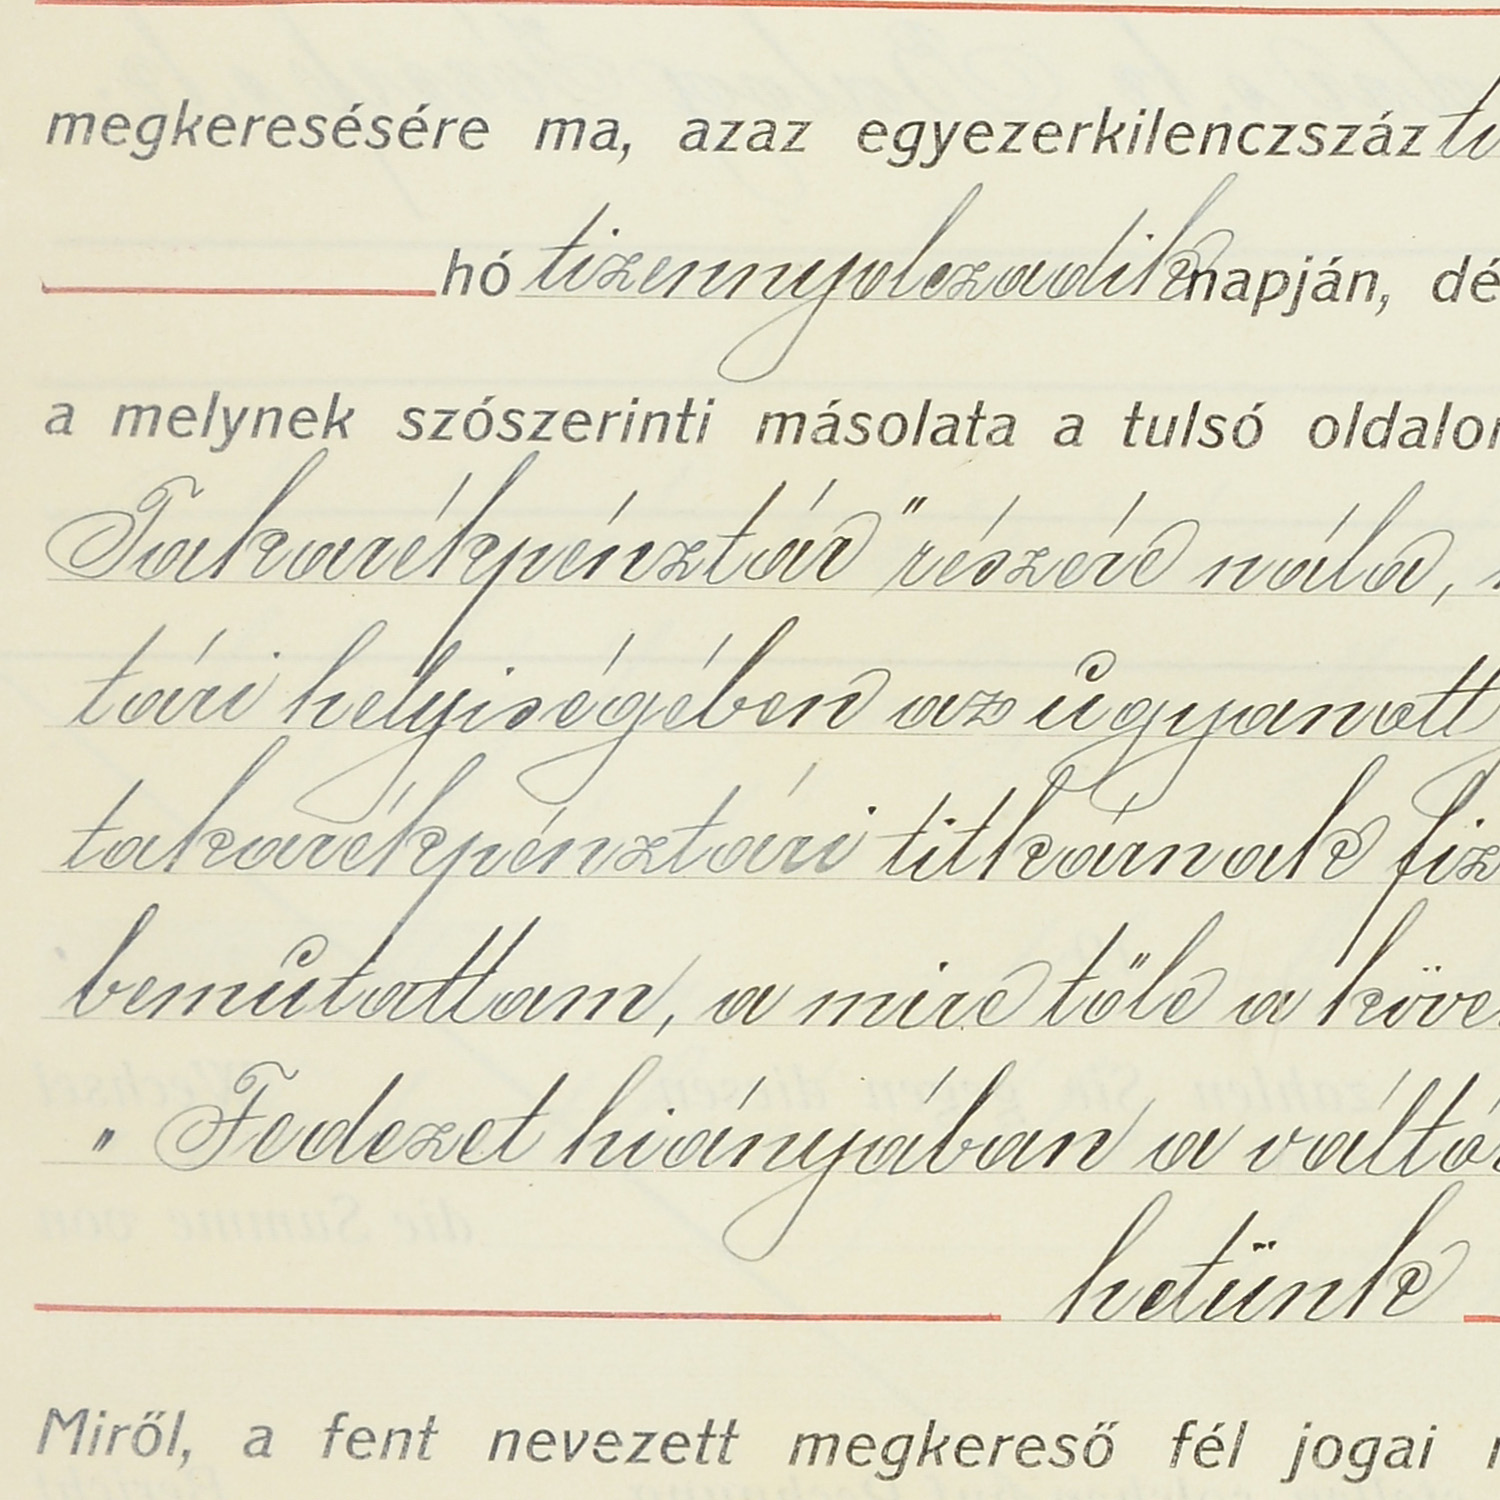 megkeresésére ma, azaz egyezerkilenczszáz
hó tizennyolczadik napján, dé
a melynek szószerinti másolata a tulsó oldalon
Takarékpénztár" részére nála,
tári helyiségében az ugyanott
takarékpénztári titkárnak fiz
bemutattam, a mire tőle a köve
"Fedezet hiányában a váltó
hetünk
Miről, a fent nevezett megkereső fél jogai